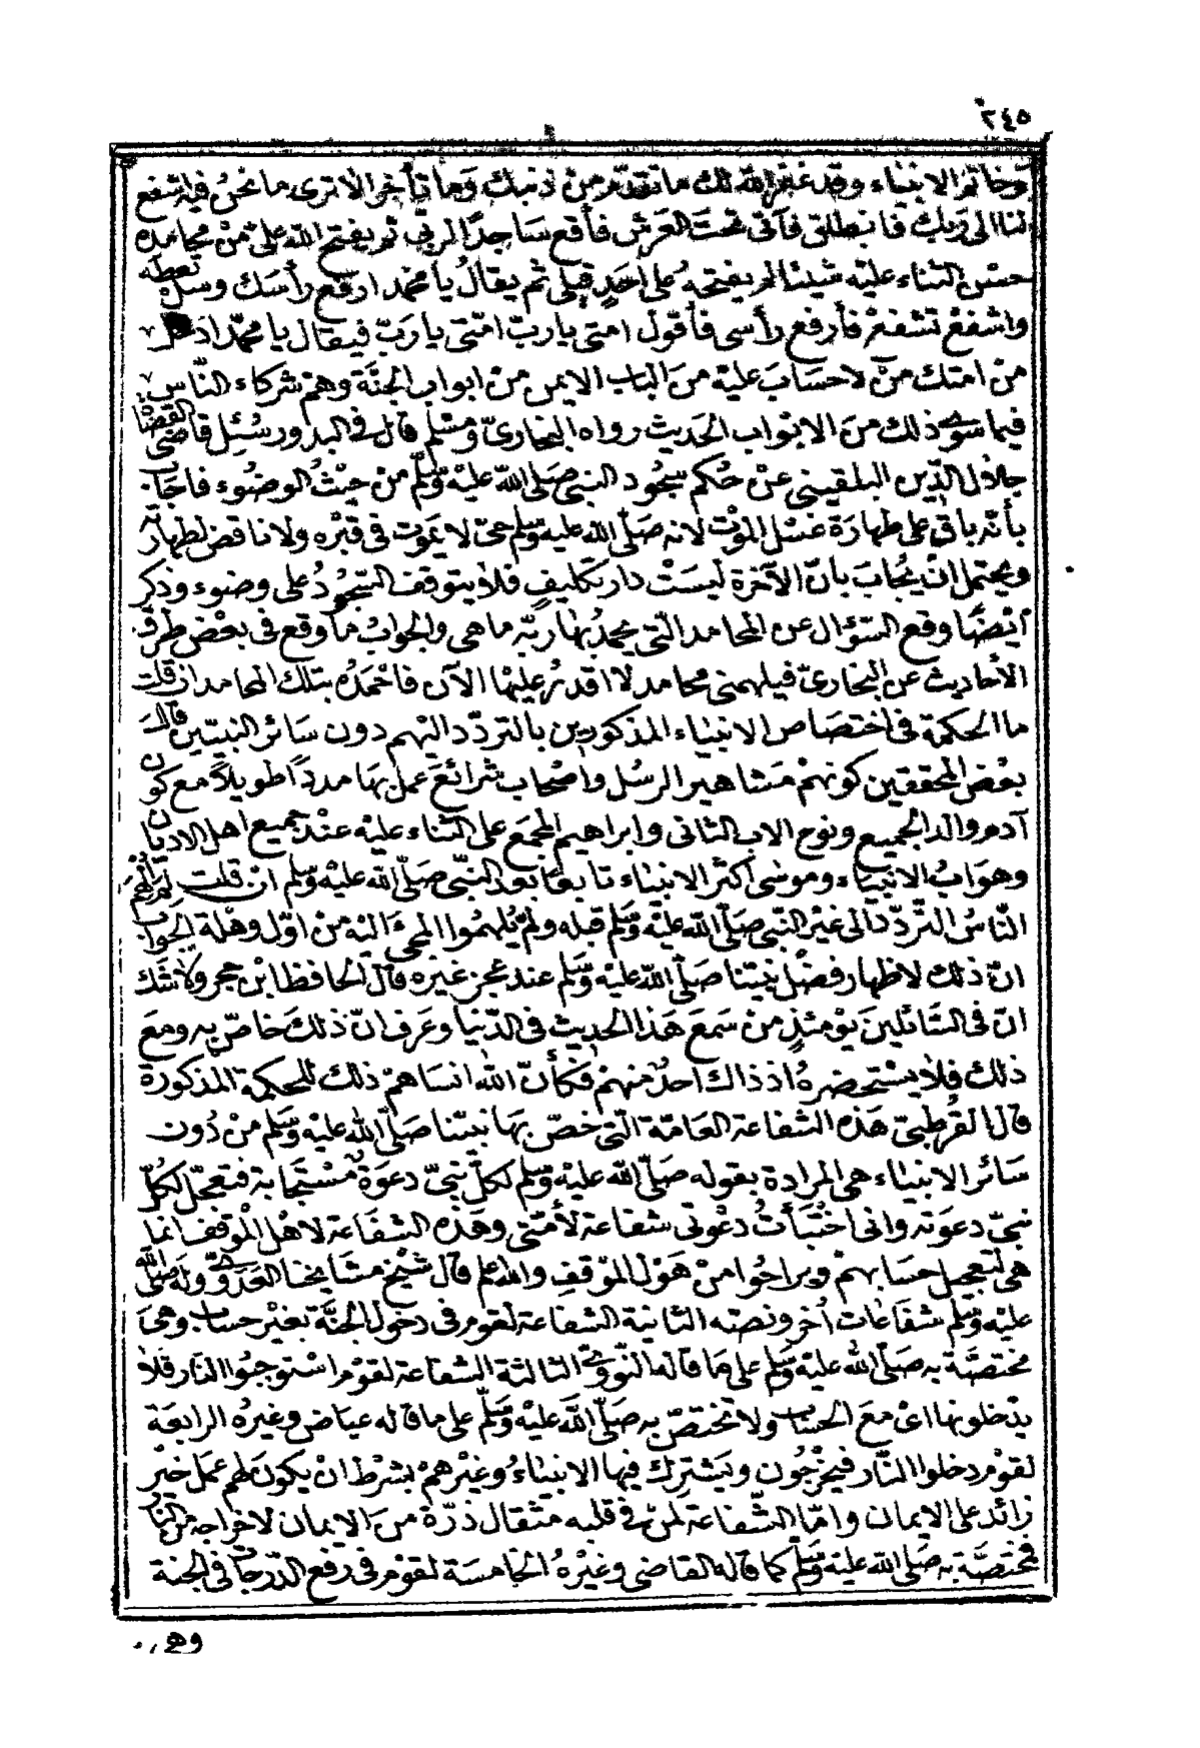 ٢٤٥
وخاتم الانبياء وقد غفر الله لك ما تقدّم من ذنبك وما تأخر الا ترى ما نحن فيه اشفع
لنا الى ربك فانطلق فآتى تحت العرش فأقع ساجدًا لربي ثم يفتح الله علىّ من محامده
حسن الثناء عليه شيئا لم يفتحه على احد قبلى ثم يقال يا محمد ارفع رأسك وسل تعطه
واشفع تشفع فأرفع رأسى فأقول امتى يا ربّ امّتى يا ربّ فيقال يا محمّد ادخل
من امتك منّ لا حساب عليه من الباب الايمن من ابواب الجنّة وهم شركاء النّاس
فيما سوى ذلك من الابواب الحديث رواه البخارىّ ومسلم قال فى البدور سُئِل قاضى القضاة
جلال الدّين البلقينى عن حُكم سجُود النبى صَلى الله عليه وسلّم من حيثُ الوضُوء فاجاب
بأنّه باقٍ على طهارة غسل الموت لانه صَلّى الله عليه وسلم حىّ لا يموت فى قبْره ولا ناقض لطهارته
ويحتمل انْ يُجابَ بانّ الآخرة ليسَتْ دار تكليفٍ فلا يتوقف السّجُودُ على وضوء وذكر
أيضًا وقع السّؤال عن المحامد الّتى يحمدُ بها ربّه ما هى والجوابُ ما وقع فى بعْض طرق
الأحاديث عن البخارىّ فيلهمنى محامد لا اقدرُ عليها الآن فاحْمَدُه بتلك المحامد ان قلت
ما الحكمة فى اختصاص الانبياء المذكورين بالتردّد اليْهم دون سَائر النبيّين قالَ
بعْض المحققين كونهمْ مَشاهير الرسُل واصْحاب شرائعَ عمل بهَا مدداً طويلةً مع كون
آدم والد الجميع ونوح الاب الثانى وابراهيم المجمَع على الثناء عليْه عنْد جميع اهل الاديان
وهوَ ابُ الانبياء وموسَى اكثرُ الانبياء تابعًا بعد النّبى صَلّى الله عليْه وسّلم ان قلت لمَ الهم
النّاسُ التّردّد الى غيْر النّبى صَلّى الله عليْه وسّلم قبله ولمْ يُلهمُوا المجىءَ اليْه منْ اوّل وهْلة الجوابُ
انّ ذلك لاظهار فضْل نبيّنا صَلّى الله عليْه وسّلم عند عجز غيْره قال الحافظ ابن حجر ولا شَك
انّ فى السَّائلينَ يوْمئذٍ منْ سَمعَ هَذا الحديث فى الدّنيا وعَرف انّ ذلكَ خاصّ به ومعَ
ذلك فلا يسْتحضرهُ اذ ذاك احدٌ منهمْ فكأنّ الله انسَاهمْ ذلك للحكمة المذكورة
قال القرطبىّ هَذه الشفاعة العَامّة الّتى خصّ بهَا نبيّنا صَلّى الله عليْه وسّلم من دُون
سَائر الانبياء هى المرادة بقوله صَلّى الله عليْه وسّلم لكلّ نبىّ دعوَة مُسْتجابة فتعجّل كلّ
نبىّ دعوَته وانى اختبَأتُ دعْوتى شفاعة لأمّتى وهَذه الشفَاعَة لاهْل الموْقف انما
هى لتعْجيل حسَابهمْ ويراحُوا منْ هَوْل الموْقفِ والله اعلم قال شيْخ مشَايخنا العَدوىّ وله صلى الله
عليْه وسّلم شفَاعَات أُخر ونصّه الثانية الشفاعَة لقوْم فى دخول الجنّة بغيْر حساب وهىَ
مختصّة به صَلّى الله عليْه وسّلم على مَا قاله النّووىّ الثالثة الشفاعة لقوْم اسْتوجبُوا النّار فلا
يدْخلونها اىْ معَ الحسَاب ولا تختصّ به صَلّى الله عليْه وسّلم على ما قاله عيَاض وغيرهُ الرابعَة
لقوْم دخلوا النّار فيخْرجُون ويَشترك فيها الانبيَاءُ وغيرهمْ بشرْط انْ يكونَ لهم عمل خيْر
زائد على الايمان وامّا الشّفاعة لمنْ فى قلبه مثقال ذرّة من الايمان لاخراجه من النّار
فمختصّة به صَلى الله عليْه وسّلم كما قاله القاضى وغيْرهُ الخامسَة لقوْم فى رفع الدّرجاتُ فى الجنة
وهى